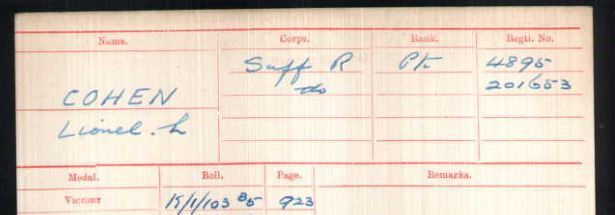 Name. Corps. Rank. Regtl. No.
Suff R Pte 4895
COHEN do 201653
Lionel. L
Medal. Roll. Page. Remarks.
Victory K/1/103 B5 923